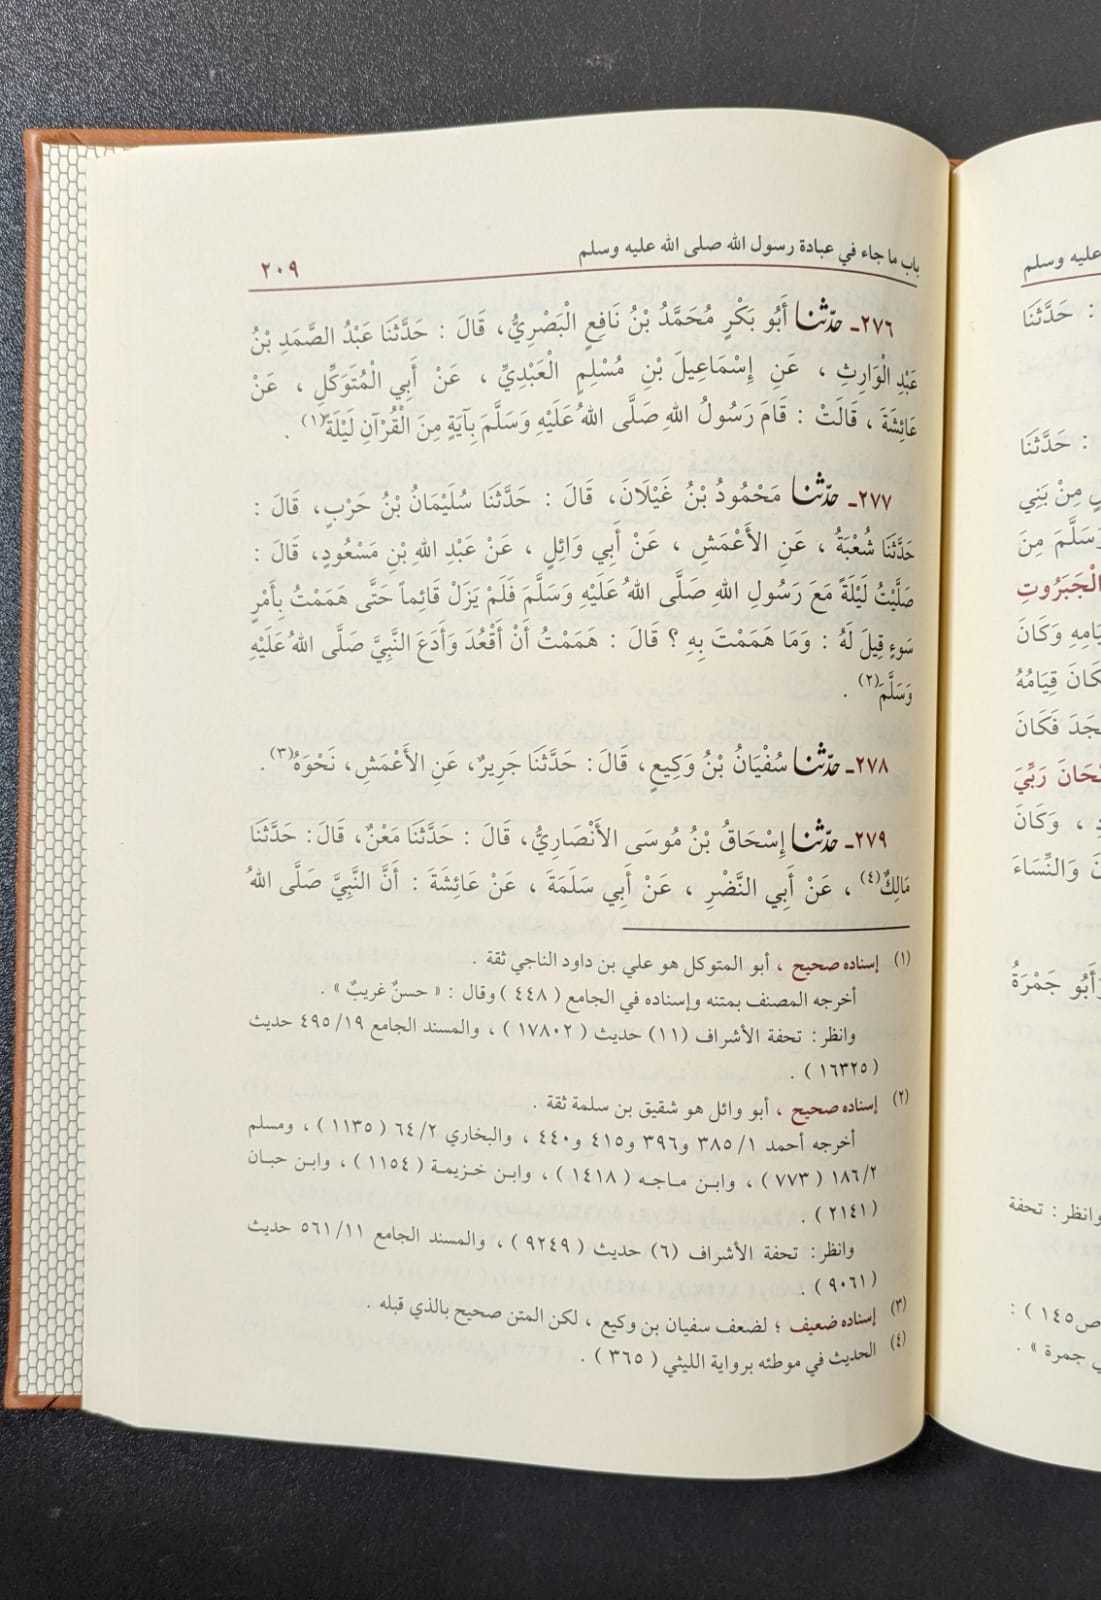 باب ما جاء في عبادة رسول الله صلى الله عليه وسلم
٢٠٩
٢٧٦ـ حدّثنا أَبُو بَكْرٍ مُحَمَّدُ بْنُ نَافِعٍ الْبَصْرِيُّ، قَالَ : حَدَّثَنَا عَبْدُ الصَّمَدِ بْنُ
عَبْدِ الْوَارِثِ ، عَنِ إِسْمَاعِيلَ بْنِ مُسْلِمٍ الْعَبْدِيِّ ، عَنْ أَبِي الْمُتَوَكِّلِ ، عَنْ
عَائِشَةَ ، قَالَتْ : قَامَ رَسُولُ اللهِ صَلَّى اللهُ عَلَيْهِ وَسَلَّمَ بِآيَةٍ مِنَ الْقُرْآنِ لَيْلَةً(١) .
٢٧٧ـ حدّثنا مَحْمُودُ بْنُ غَيْلَانَ، قَالَ : حَدَّثَنَا سُلَيْمَانُ بْنُ حَرْبٍ، قَالَ :
حَدَّثَنَا شُعْبَةُ ، عَنِ الأَعْمَشِ ، عَنْ أَبِي وَائِلٍ ، عَنْ عَبْدِ اللهِ بْنِ مَسْعُودٍ، قَالَ :
صَلَّيْتُ لَيْلَةً مَعَ رَسُولِ اللهِ صَلَّى اللهُ عَلَيْهِ وَسَلَّمَ فَلَمْ يَزَلْ قَائِماً حَتَّى هَمَمْتُ بِأَمْرٍ
سَوءٍ قِيلَ لَهُ : وَمَا هَمَمْتَ بِهِ ؟ قَالَ : هَمَمْتُ أَنْ أَقْعُدَ وَأَدَعَ النَّبِيَّ صَلَّى اللهُ عَلَيْهِ
وَسَلَّمَ(٢) .
٢٧٨ـ حدّثنا سُفْيَانُ بْنُ وَكِيعٍ، قَالَ: حَدَّثَنَا جَرِيرٌ، عَنِ الأَعْمَشِ، نَحْوَهُ(٣) .
٢٧٩ـ حدّثنا إِسْحَاقُ بْنُ مُوسَى الأَنْصَارِيُّ، قَالَ : حَدَّثَنَا مَعْنٌ، قَالَ: حَدَّثَنَا
مَالِكٌ(٤) ، عَنْ أَبِي النَّضْرِ ، عَنْ أَبِي سَلَمَةَ ، عَنْ عَائِشَةَ : أَنَّ النَّبِيَّ صَلَّى اللهُ
(١) إسناده صحيح ، أبو المتوكل هو علي بن داود الناجي ثقة .
أخرجه المصنف بمتنه وإسناده في الجامع ( ٤٤٨ ) وقال : « حسنٌ غريبٌ » .
وانظر: تحفة الأشراف (١١) حديث ( ١٧٨٠٢ ) ، والمسند الجامع ٤٩٥/١٩ حديث
( ١٦٣٢٥ ) .
(٢) إسناده صحيح ، أبو وائل هو شقيق بن سلمة ثقة .
أخرجه أحمد ١/ ٣٨٥ و٣٩٦ و٤١٥ و٤٤٠ ، والبخاري ٦٤/٢ ( ١١٣٥ ) ، ومسلم
١٨٦/٢ ( ٧٧٣ ) ، وابـن مـاجـه ( ١٤١٨ ) ، وابـن خـزيمـة ( ١١٥٤ ) ، وابـن حبـان
( ٢١٤١ ) .
وانظر: تحفة الأشراف (٦) حديث ( ٩٢٤٩ ) ، والمسند الجامع ٥٦١/١١ حديث
( ٩٠٦١ ) .
(٣) إسناده ضعيف ؛ لضعف سفيان بن وكيع ، لكن المتن صحيح بالذي قبله .
(٤) الحديث في موطئه برواية الليثي ( ٣٦٥ ) .
عليه وسلم
: حَدَّثَنَا
: حَدَّثَنَا
مِنْ بَنِي
وَسَلَّمَ مِنَ
الْجَبَرُوتِ
وَكَانَ
قِيَامُهُ
فَكَانَ
رَبِّيَ
، وَكَانَ
وَالنِّسَاءَ
أَبُو جَمْرَةَ
وانظر : تحفة
ص١٤٥ ) :
جمرة » .